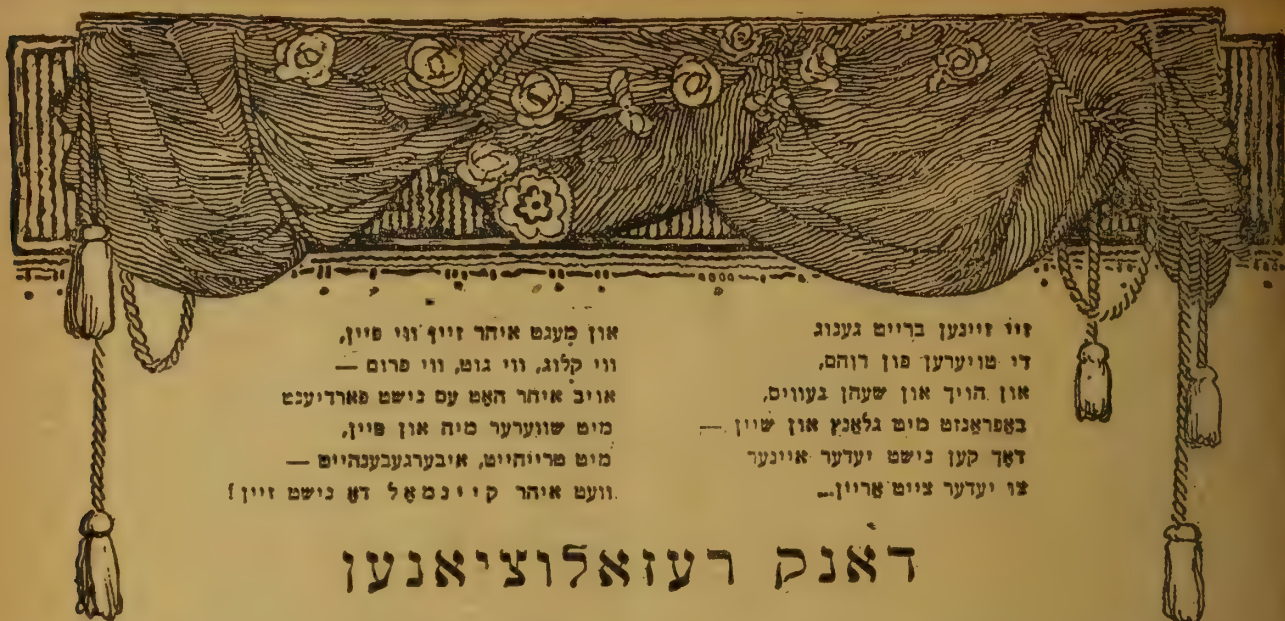 זיי זיינען ברייט גענוג
די טויערען פון רוהם,
און הויך און שעהן געווים,
באפראנזט מיט גלאנץ און שיין —
דאך קען נישט יעדער איינער
צו יעדער צייט אריין...
און מעגט איהר זיין ווי פיין,
ווי קלוג, ווי גוט, ווי פרום —
אויב איהר האט עס נישט פארדיענט
מיט שווערער מיה און פיין,
מיט טרייהייט, איבערגעבענהייט —
וועט איהר קיינמאל דא נישט זיין!
דאנק רעזאלוציאנען